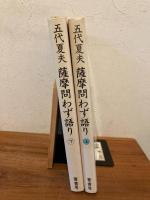 五代夏夫 薩摩問わず語り 下
五代夏夫 薩摩問わず語り 上